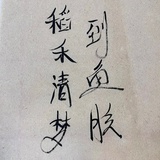 到鱼朕
稻禾清梦